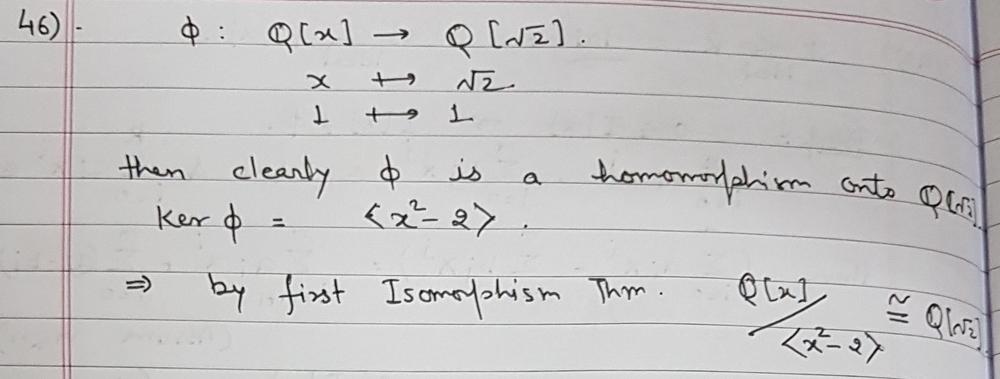 46). ϕ : Q[x] → Q[√2].
x ↦ √2.
1 ↦ 1
then clearly ϕ is a homomorphism onto Q[√2].
Ker ϕ = <x²-2>.
⇒ by first Isomorphism Thm. Q[x]/<x²-2> ≅ Q[√2].